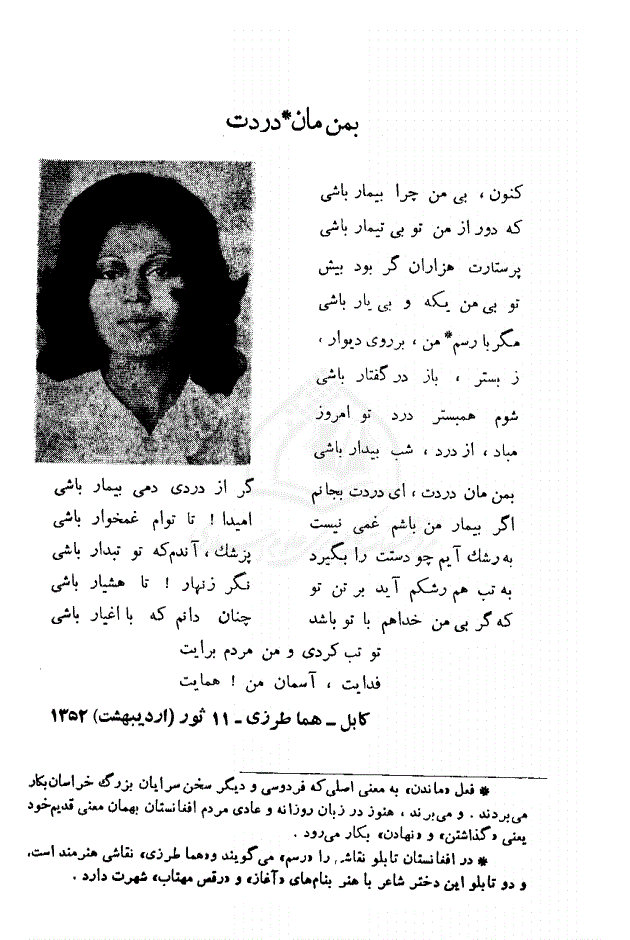 بمن مان* دردت
کنون ، بی من چرا بیمار باشی
که دور از من تو بی تیمار باشی
پرستارت هزاران گر بود بیش
تو بی من یکه و بی یار باشی
مگر با رسم* من ، بر روی دیوار ،
ز بستر ، باز در گفتار باشی
شوم همبستر درد تو امروز
مباد ، از درد ، شب بیدار باشی
بمن مان دردت ، ای دردت بجانم گر از دردی دمی بیمار باشی
اگر بیمار من باشم غمی نیست امیدا ! تا توام غمخوار باشی
به رشك آیم چو دستت را بگیرد پزشك ، آندم که تو تبدار باشی
به تب هم رشکم آید بر تن تو نگر زنهار ! تا هشیار باشی
که گر بی من خداهم با تو باشد چنان دانم که با اغیار باشی
تو تب کردی و من مردم برایت
فدایت ، آسمان من ! همایت
کابل ـ هما طرزی ـ ۱۱ ثور (اردیبهشت) ۱۳۵۲
* فعل «ماندن» به معنی اصلی که فردوسی و دیگر سخن سرایان بزرگ خراسان بکار
می‌بردند . و می‌برند ، هنوز در زبان روزانه و عادی مردم افغانستان بهمان معنی قدیم خود
یعنی «گذاشتن» و «نهادن» بکار می‌رود .
* در افغانستان تابلو نقاشی را «رسم» می‌گویند و «هما طرزی» نقاشی هنرمند است،
و دو تابلو این دختر شاعر با هنر بنام‌های «آغاز» و «رقص مهتاب» شهرت دارد .